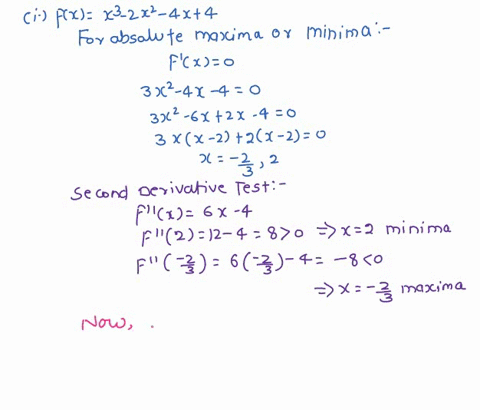 (i.) f(x) = x³-2x²-4x+4
For absolute maxima or minima:-
F'(x)=0
3x²-4x-4=0
3x²-6x+2x-4=0
3x(x-2)+2(x-2)=0
x = -2/3, 2
Second Derivative Test:-
F''(x) = 6x-4
F''(2)=12-4 = 8>0 ⇒ x=2 minima
F''(-2/3) = 6(-2/3)-4 = -8<0
⇒ x = -2/3 maxima
Now, .